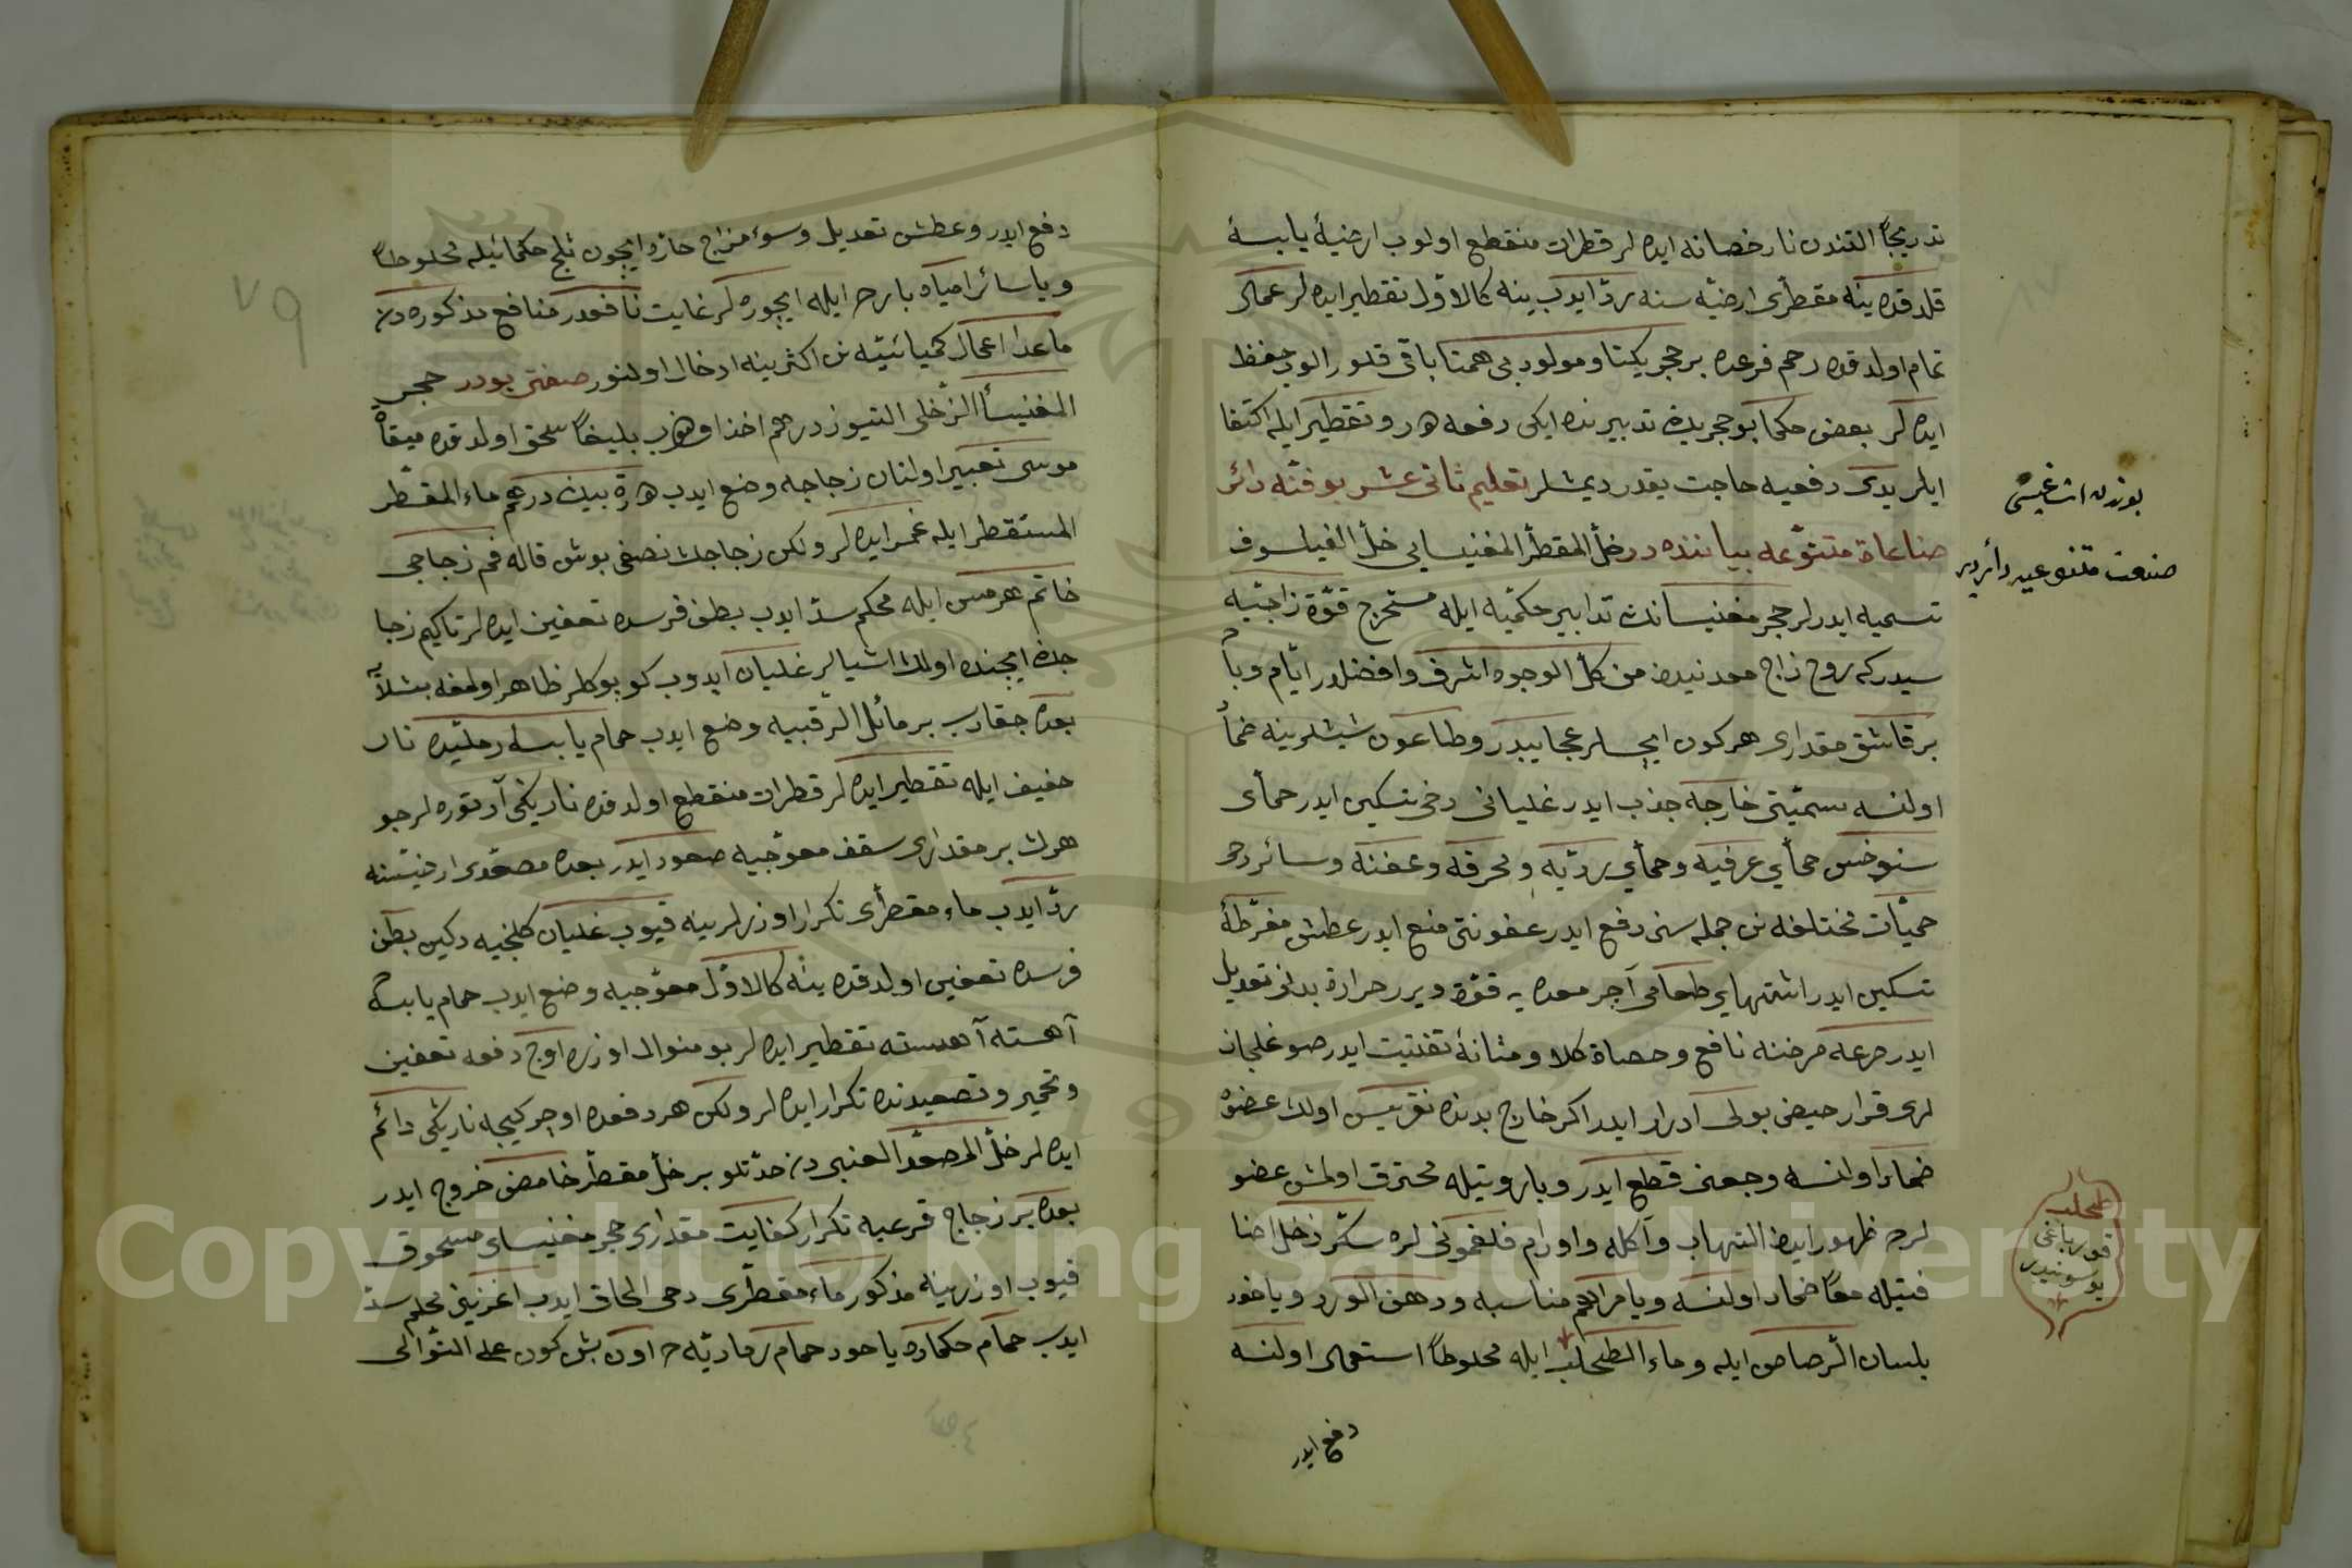 تدریجاً التندن نار خصانه ایده لر قطرات منقطع اولوب ارضیهٔ یابسهٔ
قلدقده ینه مقطری ارضیه سنه ردّ ایدوب ینه کالاوّل تقطیر ایده لر عمال
تمام اولدقده رحم قرعده بر حجر یکتا و مولود بی همتا باقی قلور الوب حفظ
ایده لر بعض حکما بو حجریه تدبیرنده ایکی دفعه هدر و تقطیر ایله اکتفا
ایلر یدی دفعیه حاجت یقدر دیمشلر تعلیم ثانی عشر بو فنّه دائر
صناعات متنوّعه بیاننده در خلّ المقطر المغنیسایی خلّ الفیلسوف
تسمیه ایدرلر حجر مغنیسانك تدابیر حکمیّه ایله مستخرج قوّة زاجیّه
سیدرکه روح زاج معدنیدن من کلّ الوجوه اشرف و افضلدر ایّام وبا
بر قاشق مقداری هرکون ایچسلر عجایبدر و طاعون شیشلرینه ضماً
اولنسه سمیّتی خارجه جذب ایدر غلیانی دخی تسکین ایدر حمای
سنوخس حمای عرفیه و حمای ردیّه و محرقه و عفنه و سائر دخی
حمیّات مختلفه نك جمله سنی دفع ایدر عفونتی منع ایدر عطش مفرطهٔ
تسکین ایدر اشتهای طعامی آچر معده یه قوّة ویرر حرارة بدنی تعدیل
ایدر صرعه مرضنه نافع و حصاة کلا و مثانهٔ تفتیت ایدر صوغلجان
لری قرار حیض بولی ادرار ایدر اکر خارج بدنده نقریس اولان عضوه
ضماد اولنسه وجعنی قطع ایدر و باروتیله محترق اولمش عضو
لرده ظهور ایدن التهاب و آکله و اورام فلغمونی لره سکّر زخل اضا
فتیله معاً ضماد اولنسه و یا مراهم مناسبه و دهن الورد و یاخود
بلسان الرّصاص ایله و ماء الطحلب ایله محلوطاً استعمال اولنسه
دفع ایدر
بوندن اشاغیسی
صنعت متنوعیه دائردر
طحلب
قورباغه
یوسونیدر
دفع ایدر و عطش تعدیل و سوء مزاج حارّ ایچون ثلج حکمائیله محلوطاً
و یا سائر امیاه بارده ایله ایچوره لر غایت نافعدر منافع مذکوره دن
ماعدا اعمال کمیائیّه نك اکثرینه ادخال اولنور صفتی بودر حجر
المغنیسا الزّخلی التیوز درهم اخذ اولنوب بلیغاً سحق اولدقده میقاة
موسی تعبیر اولنان زجاجه وضع ایدوب هرة بیك درهم ماء المقطّر
المستقطر ایله غمر ایده لر ولکن زجاجك نصفی بوش قاله فم زجاجی
خاتم هرمس ایله محکم سدّ ایدوب بطن فرسده تعفین ایده لر تاکیم زجا
جك ایچنده اولان اشیالر غلیان ایدوب کوپوکلر ظاهر اولمغه بشلاّیه
بعده چقارب بر مائل الرّقبیه وضع ایدوب حمام یابسه رملیّده نار
خفیف ایله تقطیر ایده لر قطرات منقطع اولدقده ناریکی آرتوره لر جو
هرك بر مقداری سقف معوّجیه صعود ایدر بعده مصعّدی ارضیّتنه
ردّ ایدوب ماء مقطرای تکرار اوزرلرینه قیوب غلیان کلنجیه دکین بطن
فرسده تعفین اولدقده ینه کالاوّل معوّجیه وضع ایدوب حمام یابسه
آهسته آهسته تقطیر ایده لر بو منوال اوزره اوچ دفعه تعفین
و تخمیر و تصعیدنده تکرار ایده لر ولکن هر دفعده اوچر کیجه ناریکی دائم
ایده لر خلّ المصعّد العنبی دن حدّتلو بر خلّ مقطّر حامض خروج ایدر
بعده بر زجاج قرعیه تکرار کفایت مقداری حجر مغنیسای مسحوق
قیوب اوزرینه مذکور ماء مقطّری دخی الحاق ایدب اغزینی محکم سدّ
ایدب حمام حکماده یاخود حمام رمادیّه ده اون بش کون علی التّوالی